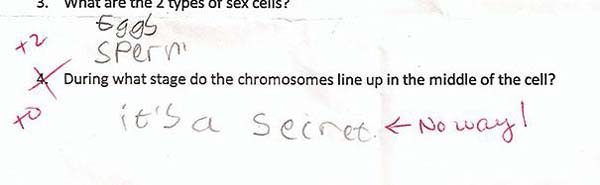 3. What are the 2 types of sex cells?
Eggs
+2
Sperm
4. During what stage do the chromosomes line up in the middle of the cell?
+0
it's a secret. ← No way!